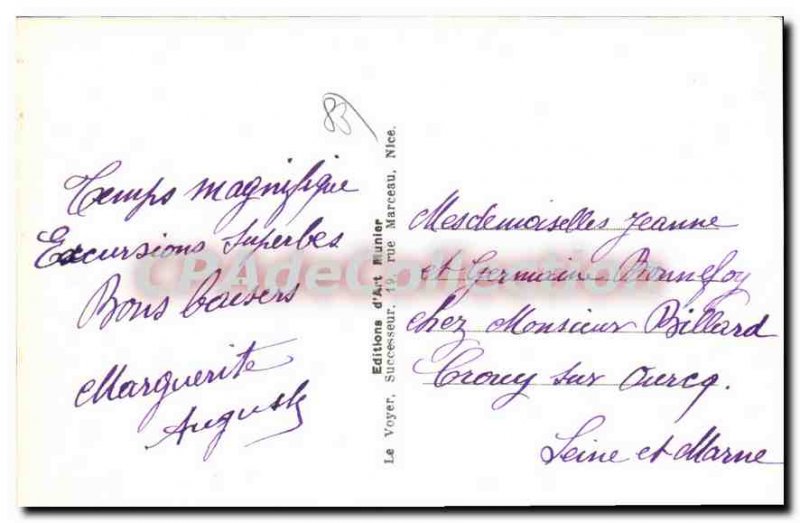 83
Temps magnifique
Excursions superbes
Bons baisers
Marguerite
Auguste
Editions d'Art Munier
Le Voyer, Successeur, 19, rue Marceau, Nice.
Mesdemoiselles Jeanne
et Germaine Bonnefoy
chez Monsieur Billard
Crouy sur Ourcq.
Seine et Marne
CPADeCollection